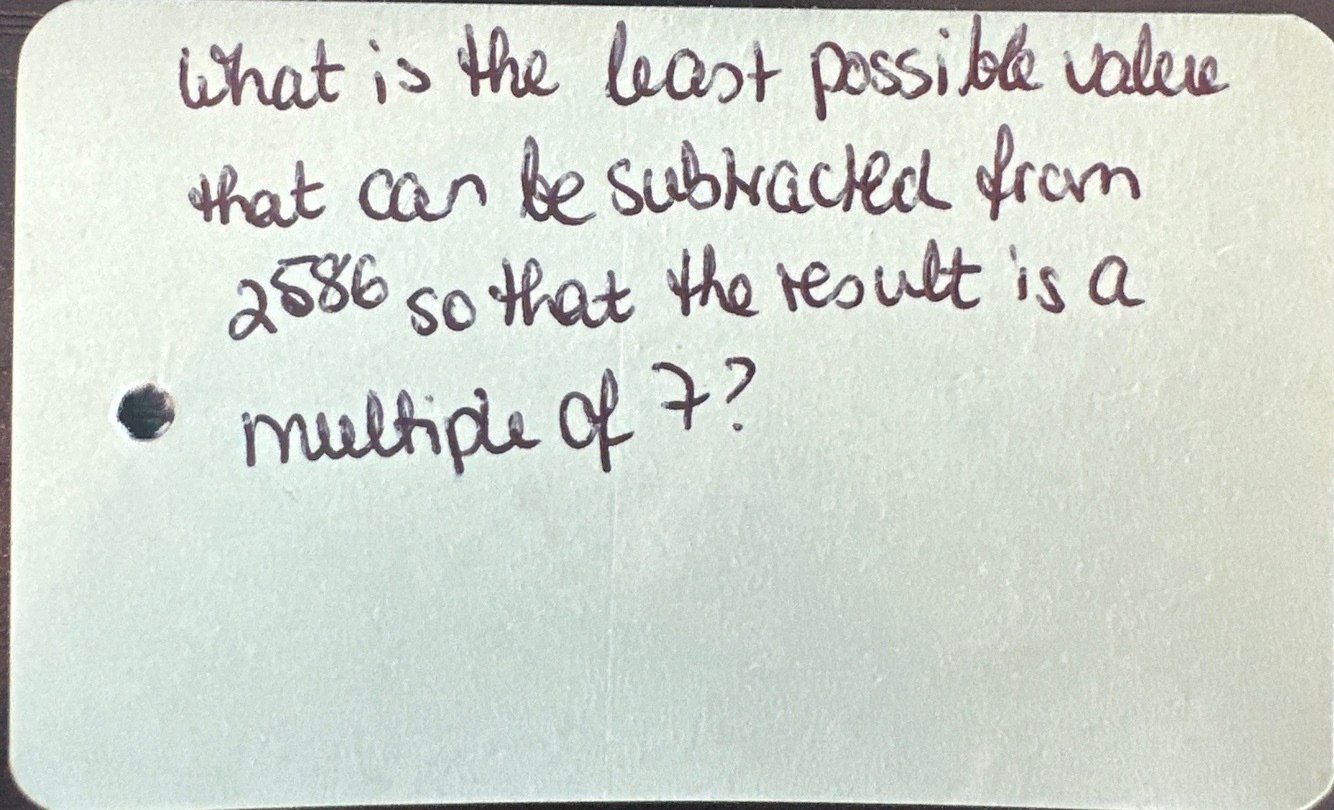 What is the least possible value
that can be subtracted from
2586 so that the result is a
multiple of 7?